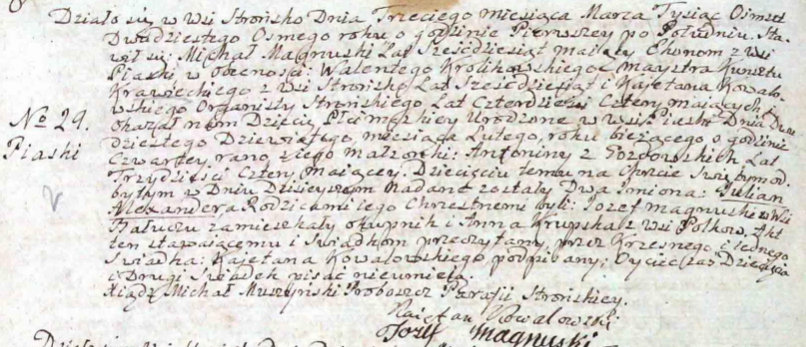 Działo się w Wsi Strońsko Dnia Trzeciego miesiąca Marca Tysiąc Ośmset
Dwudziestego Osmego roku o godzinie Pierwszey po Południu. Sta-
wił się Michał Magnuski Lat Sześcdziesiąt maiący Ekonom z wsi
Piaski w obecności: Walentego Krolikowskiego maystra Kunsztu
Krawieckiego z Wsi Strońsko Lat Sześcdziesiąt i Kajetana Kowalo-
wskiego Organisty Strońskiego Lat Czterdzieści Cztery maiących, i
No 29. okazał nam Dziecię Płci męzkiey Urodzone w wsi Piaski Dnia Dwu-
dziestego Dziewiątego, miesiąca Lutego, roku bieżącego o godzinie
Piaski czwartey rano, z iego małżonki: Antoniny z Gozdowskich Lat
Trzydzieści Cztery maiącey. Dziecięciu temu na Chrzcie Swiętym od-
bytym w Dniu Dzisieyszym Nadane zostały Dwa Imiona: Julian
Alexander a Rodzicami iego Chrzestnemi byli: Jozef Magnuski w Wsi
Bałuczu zamieszkały okupnik i Anna Krupska z wsi Polkow. Akt
ten stawaiącemu i Swiadkom przeczytany, przez Krzesnego i Jednego
Swiadka: Kajetana Kowalowskiego podpisany; Oyciec zaś Dziecięcia
i Drugi Swiadek pisać nieumieią.
Xiądz Michał Muszyński Proboszcz Parafii Strońskiey.
Kaietan Kowalowski
Jozef Magnuski